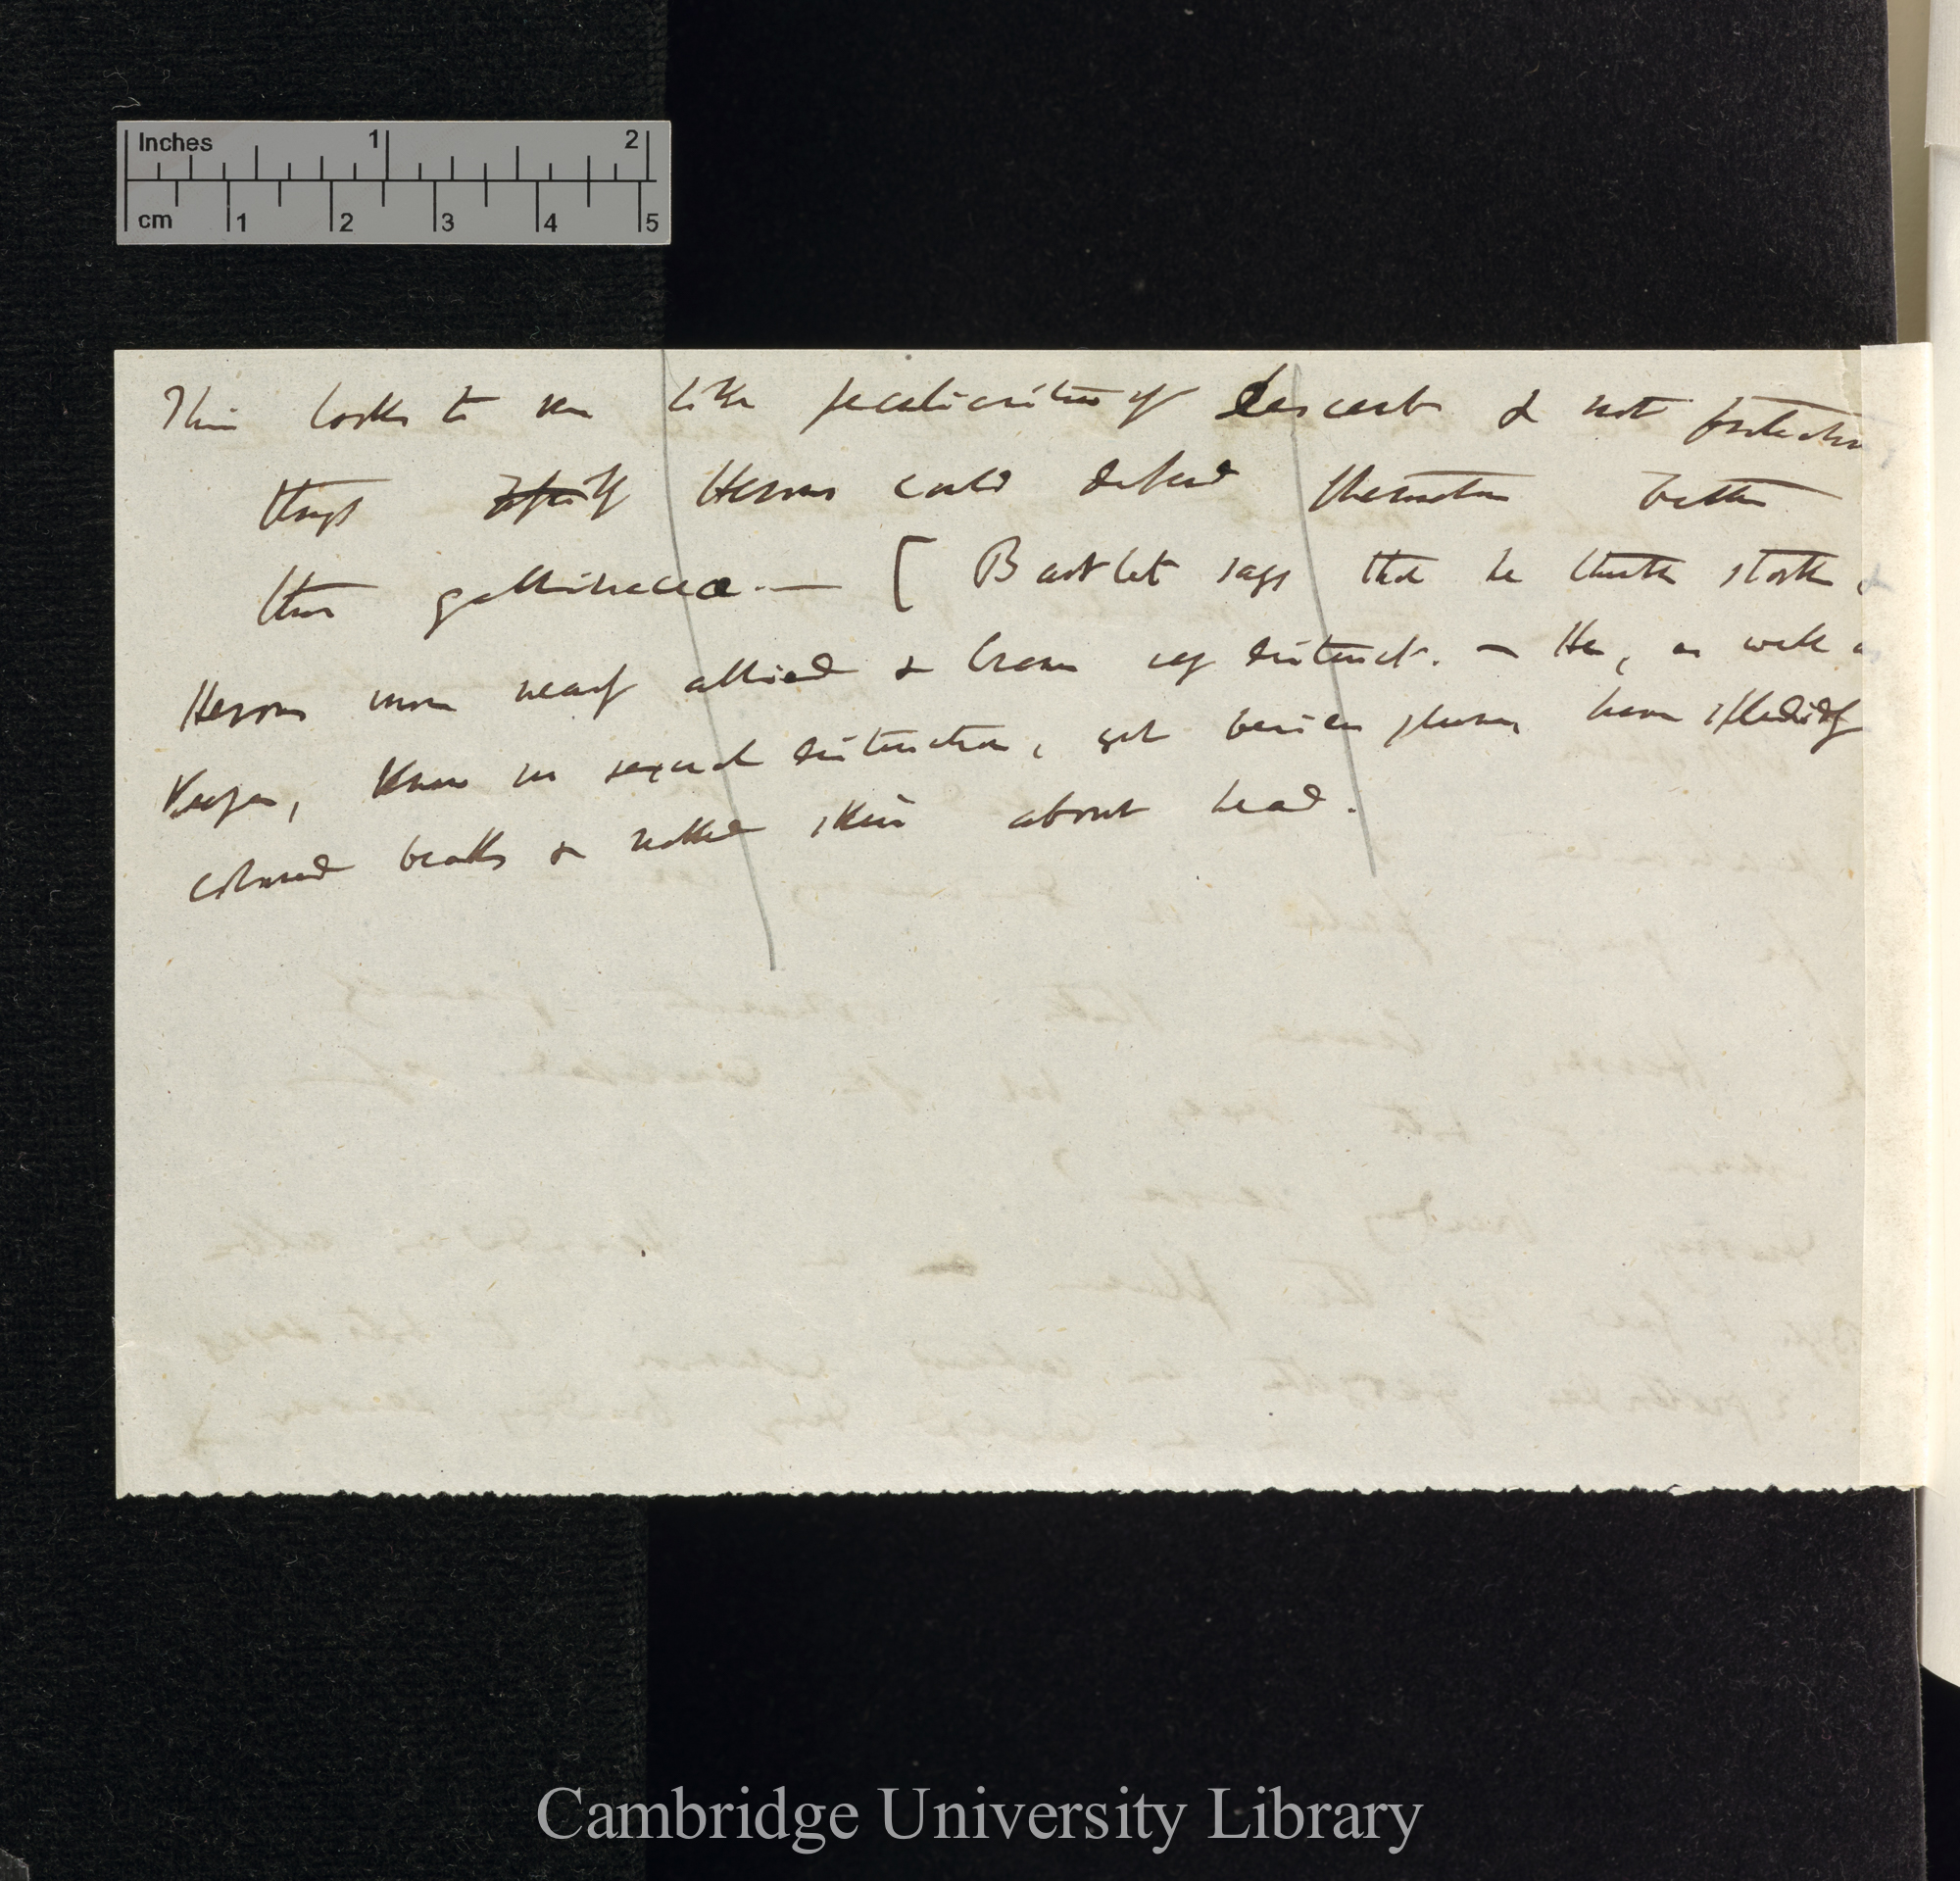 Inches 1 2
cm 1 2 3 4 5
This looks to me like peculiarities of descent & not protection
though Herons could defend themselves better
than gallinaceæ. — [ Bartlet says that he thinks storks &
Herons more nearly allied & Crane very distinct. — He, as well as
Keeper, knows no sexual distinction, yet besides plumes have splendidly
coloured beaks & naked skin about head.
Cambridge University Library